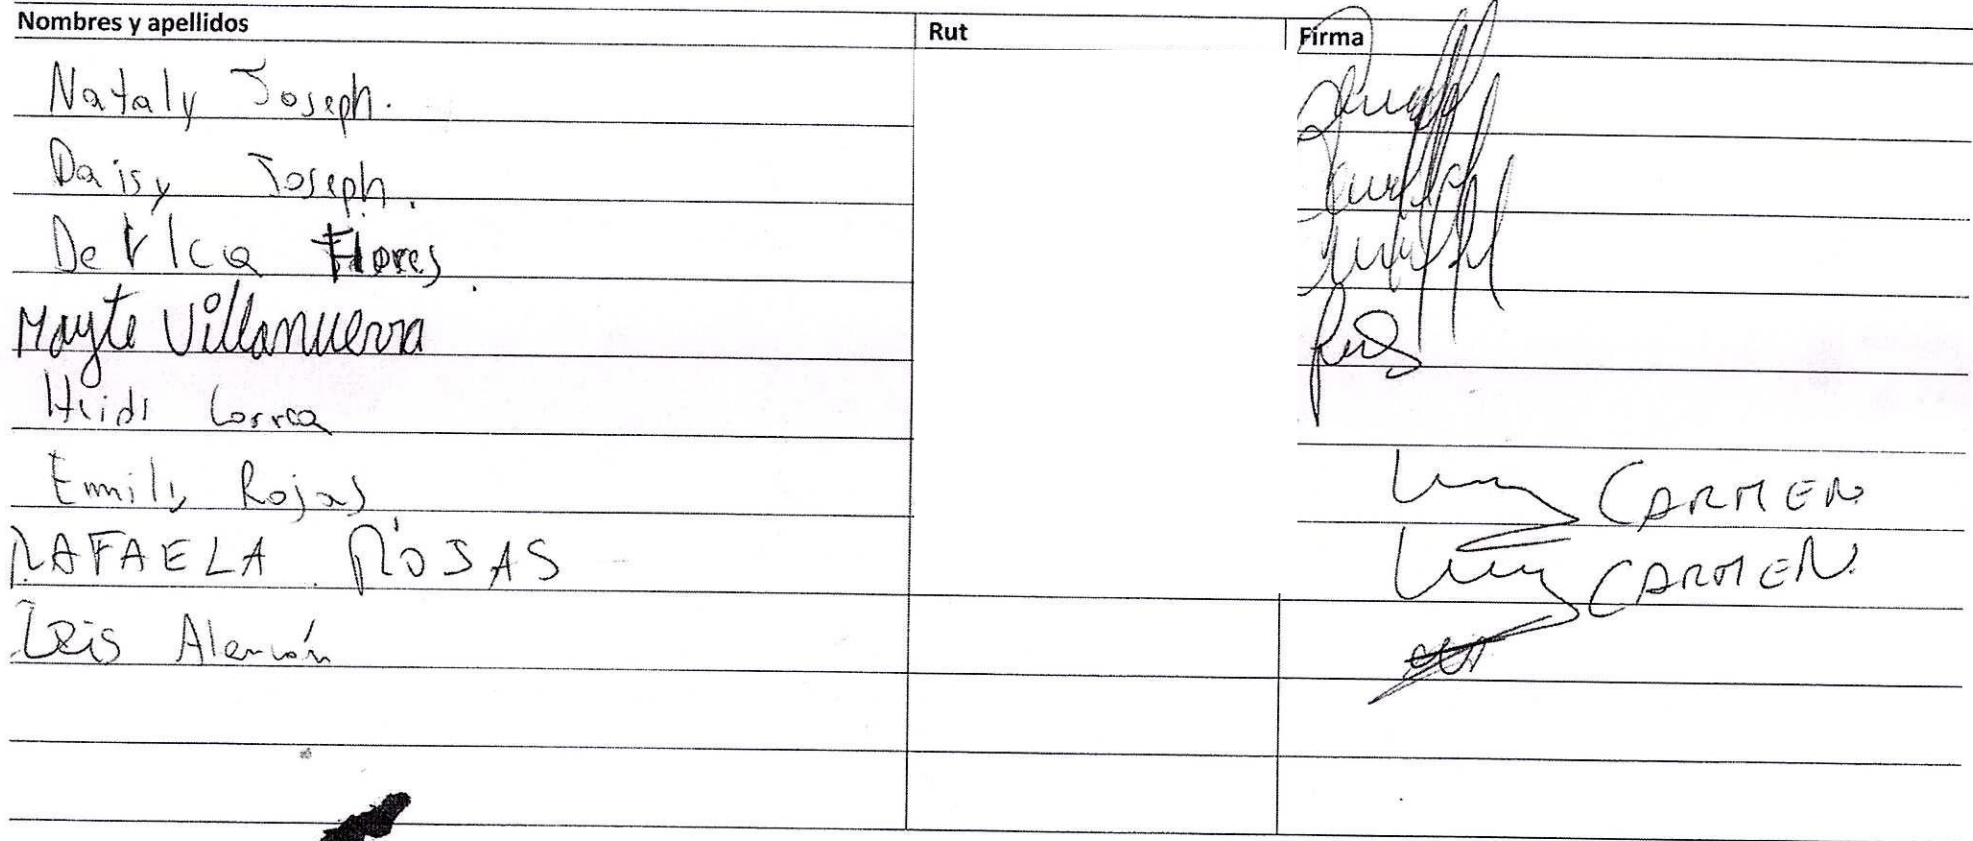 Nombres y apellidos Rut Firma
Nataly Joseph.
Daisy Joseph.
Flores
Mayte Villanueva
Heidi Correa
Emily Rojas CARMEN
RAFAELA ROJAS CARMEN